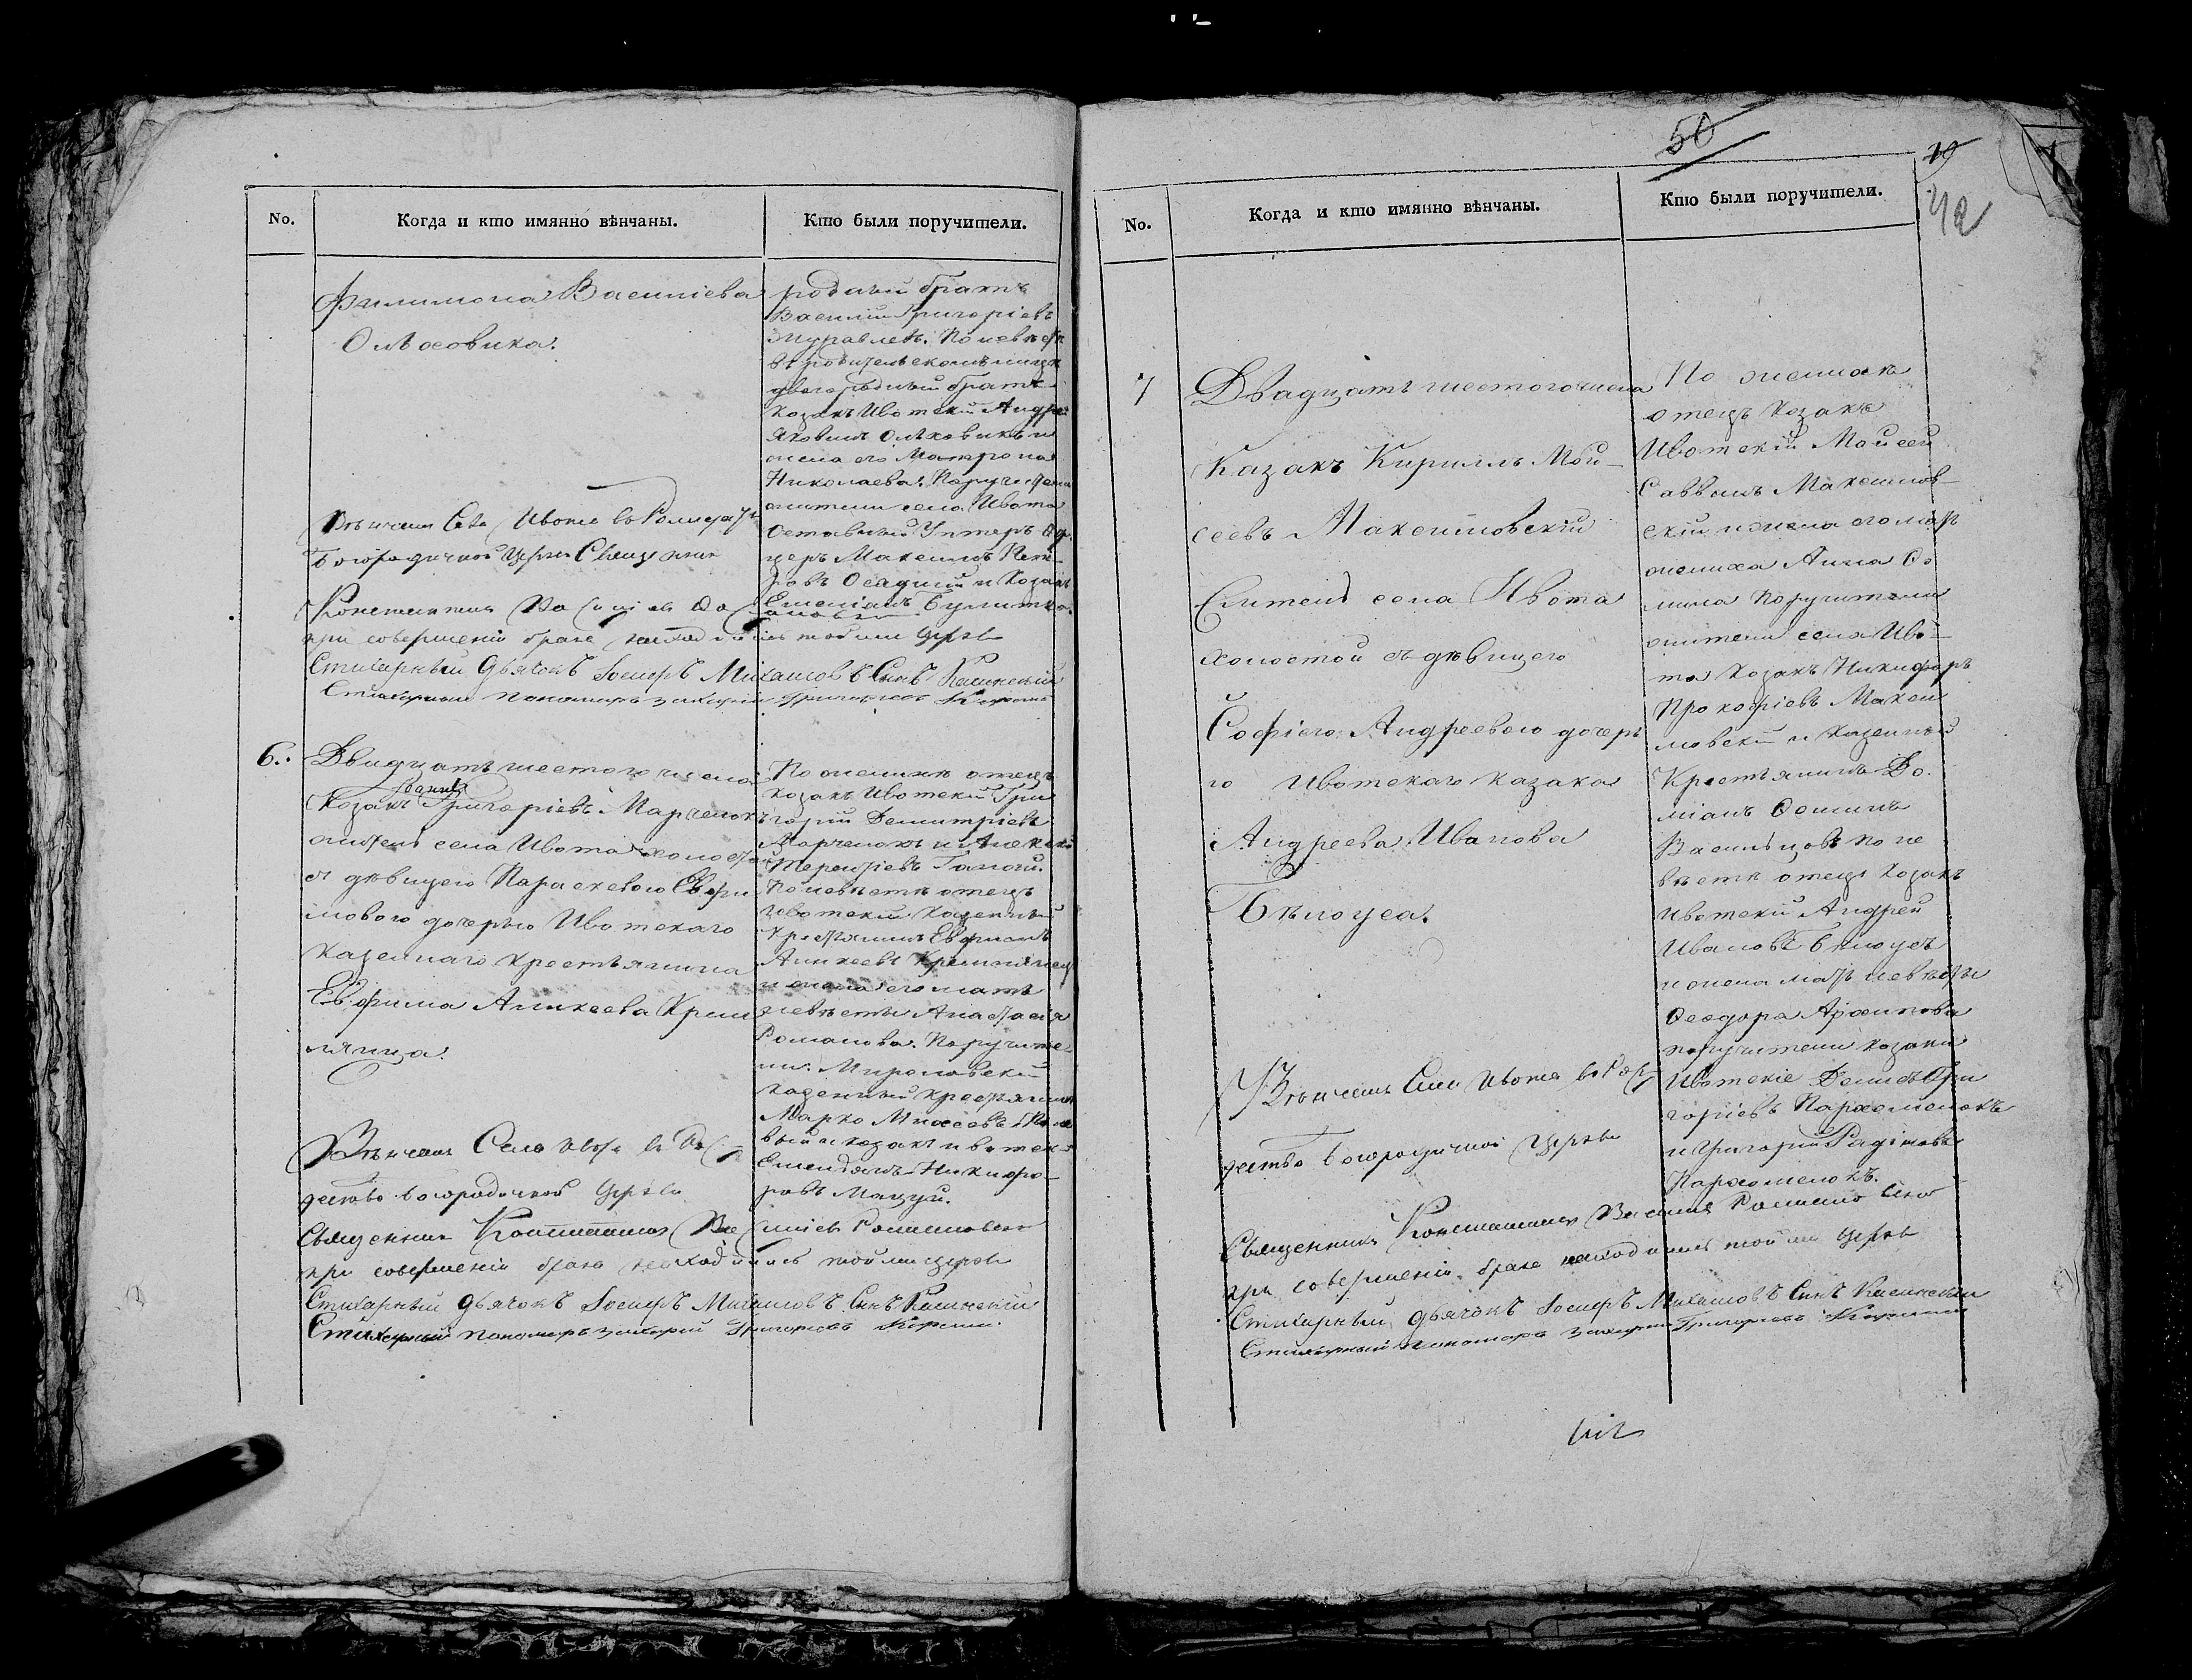 No.
Когда и кто имянно вѣнчаны.
Кто были поручители.
Филимона Василіева
Ольховика.
родный братъ
Василій Григоріевъ
Журавлевъ. По невѣстѣ
двоюродный братъ
козакъ Ивотскій Андрей
Яковлевъ Ольховикъ и
жена его Матрона
Николаева. Поручители
жители села Ивота
Оставный Унтеръ Офи
церъ Максимъ Пет
ровъ Осадчій и Козакъ
Емеліанъ
Вѣнчалъ Села Ивота въ
Богородичной Церкви Священникъ
Константинъ
при совершеніи брака находились той же Церкви
Стихарный дьячокъ Іосифъ Михаиловъ Сынъ Касинскій
Стихарный пономаръ Захарій Григоріевъ
6.
Двадцать шестого числа
Козакъ Григоріевъ Марченокъ
житель села Ивота холостой
съ дѣвицею Параскевою Евфи
мовою дочерью Ивотскаго
казеннаго крестьянина
Евфима Аникеева Крем
лянца.
По женихѣ отецъ
козакъ Ивотскій Гри
горій Димитріевъ
Марченокъ и Алексѣй
Терентіевъ
По невѣстѣ отецъ
Ивотскій казенный
крестьянинъ Евфимъ
Аникеевъ Кремлянец
и жена его мать
невѣсты Анастасія
Романова. Поручите
ли:
казенный крестьянинъ
Марко
вый и козакъ ивотск
Никифо
ровъ Мацуй.
Вѣнчалъ Села Ивота въ Рож
дество богородичной Церкви
Священникъ Константинъ Василіевъ
при совершеніи брака находились той же церкви
Стихарный дьячокъ Іосифъ Михаиловъ Сынъ Касинскій
Стихарный пономаръ Захарій Григоріевъ
50
42
No.
Когда и кто имянно вѣнчаны.
Кто были поручители.
7
Двадцать шестого числа
Казакъ Кириллъ Мои-
сеевъ Максимовскій
Житель села Ивота
холостой съ дѣвицею
Софіею Андреевою дочерь
ю Ивотскаго казака
Андреева Иванова
Бѣлоуса.
По женихѣ
отецъ козакъ
Ивотскій Моисей
Саввинъ Максимов-
скій и жена его мать
жениха Анна Фо
мина Поручители
жители села Иво-
та Козакъ Никифоръ
Прокофіевъ Макси
мовскій и казенный
Крестьянинъ До.
міанъ Фоминъ
Васильцовъ По не
вѣстѣ отецъ Козакъ
Ивотскій Андрей
Ивановъ Бѣлоусъ
и жена мать невѣсты
Феодора Архипова
поручители козаки
Ивотскіе Денисъ Гри
горіевъ Пархоменокъ
и Григорій
Пархоменокъ.
Вѣнчалъ Села Ивота въ Рож
дество богородичной Церкви
Священникъ Константинъ Василіевъ
при совершеніи брака находились той же Церкви
Стихарный дьячокъ Іосифъ Михаиловъ Сынъ Касинскій
Стихарный пономаръ Захарій Григоріевъ